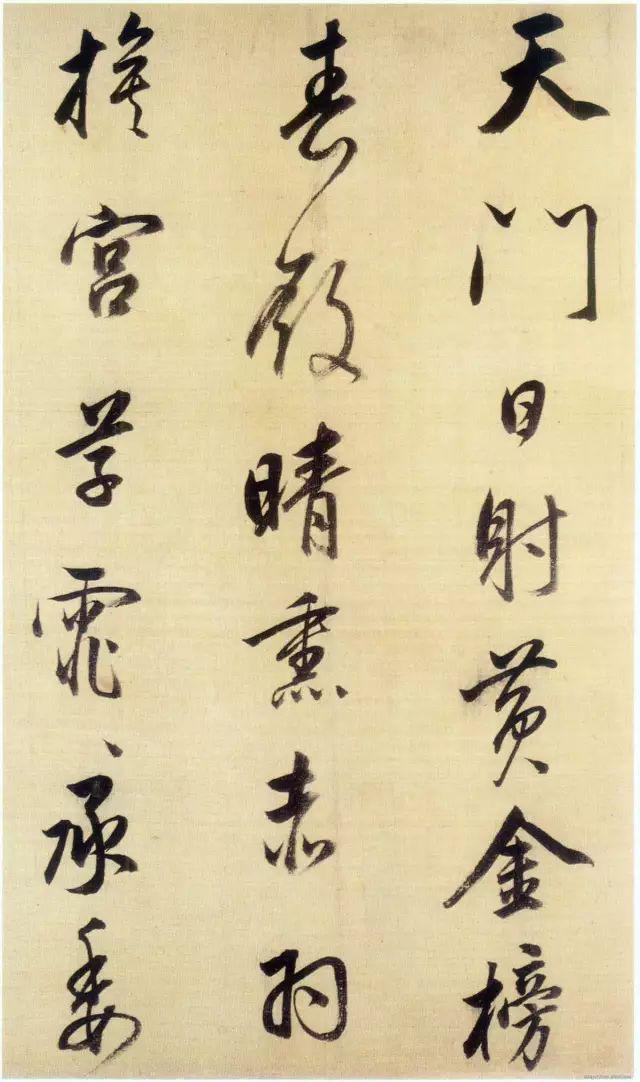 天門日射黄金榜
春殿晴熏赤羽
旗宫草霏々承委